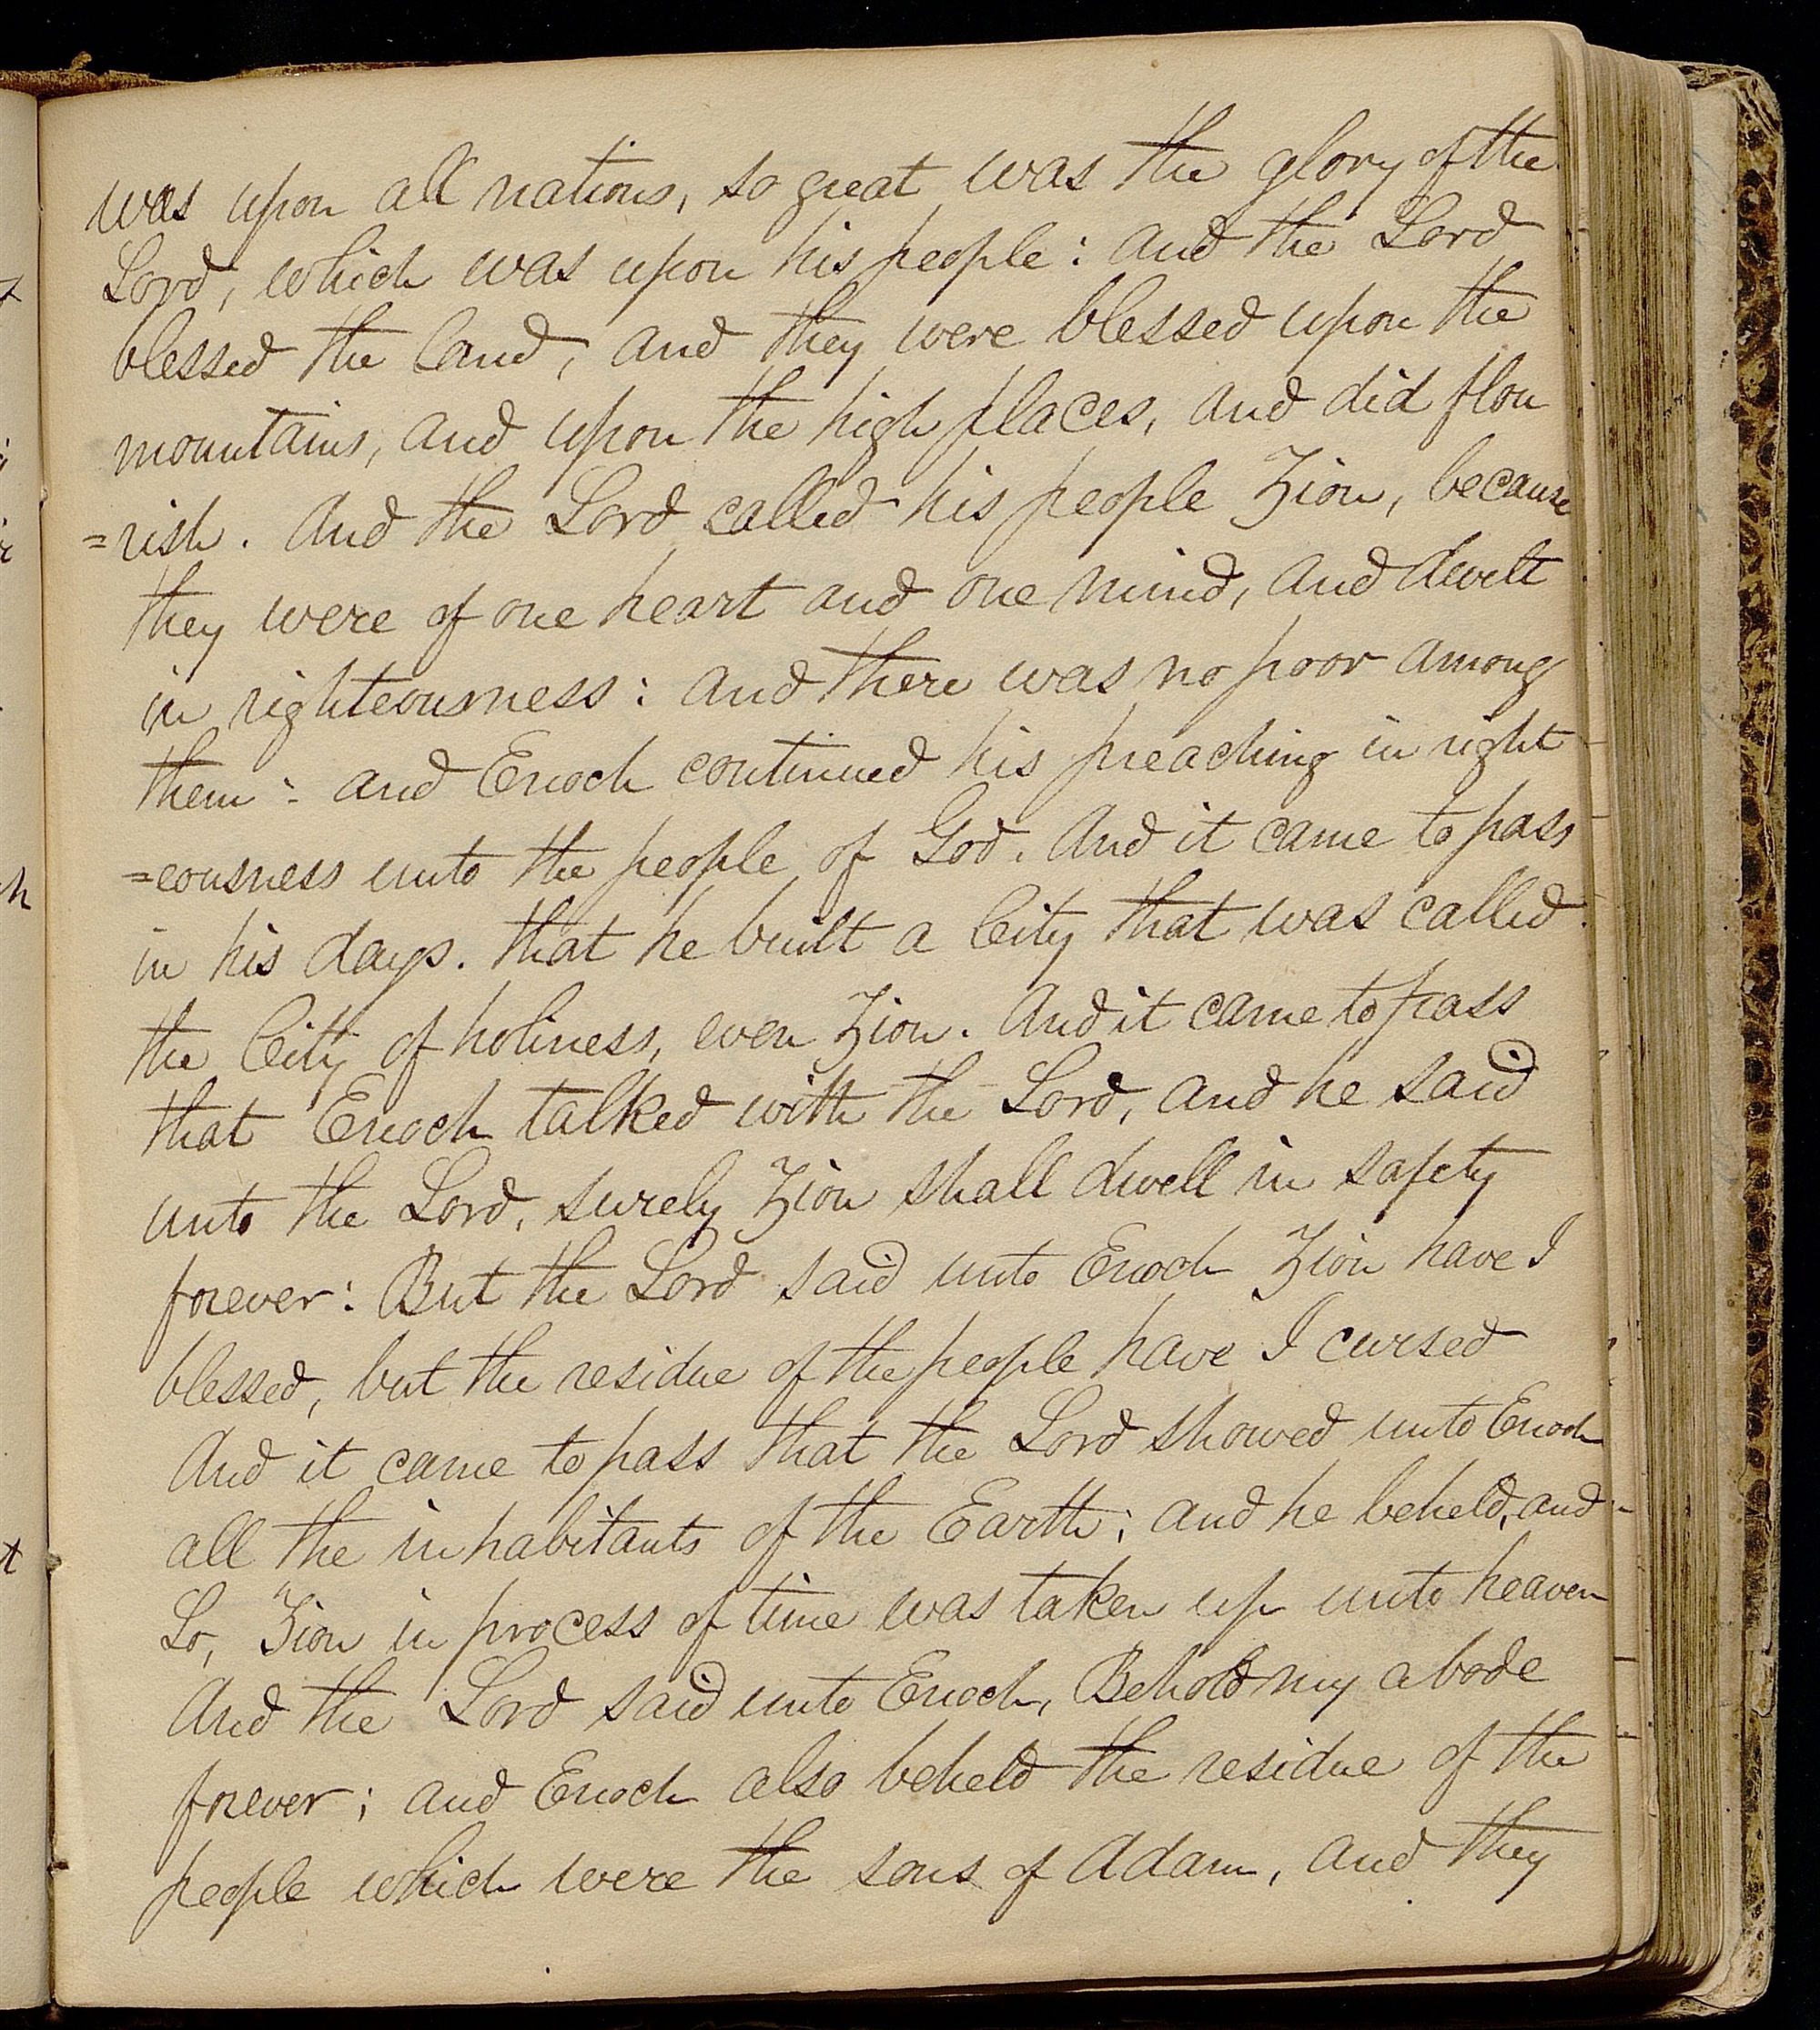 was upon all nations, so great was the glory of the
Lord, which was upon his people: and the Lord
blessed the land, and they were blessed upon the
mountains, and upon the high places, and did flou
=rish. And the Lord called his people Zion, because
they were of one heart and one mind, and dwelt
in righteousness: and there was no poor among
them: and Enoch continued his preaching in right
=eousness unto the people of God. And it came to pass
in his days. that he built a City that was called
the City of holiness, even Zion. And it came to pass
that Enoch talked with the Lord, and he said
unto the Lord, surely Zion shall dwell in safety
forever: But the Lord said unto Enoch Zion have I
blessed, but the residue of the people have I cursed
And it came to pass that the Lord showed unto Enoch
all the inhabitants of the Earth; and he beheld, and
Lo, Zion in process of time was taken up unto heaven
And the Lord said unto Enoch, Behold my abode
forever; and Enoch also beheld the residue of the
people which were the sons of Adam, and they